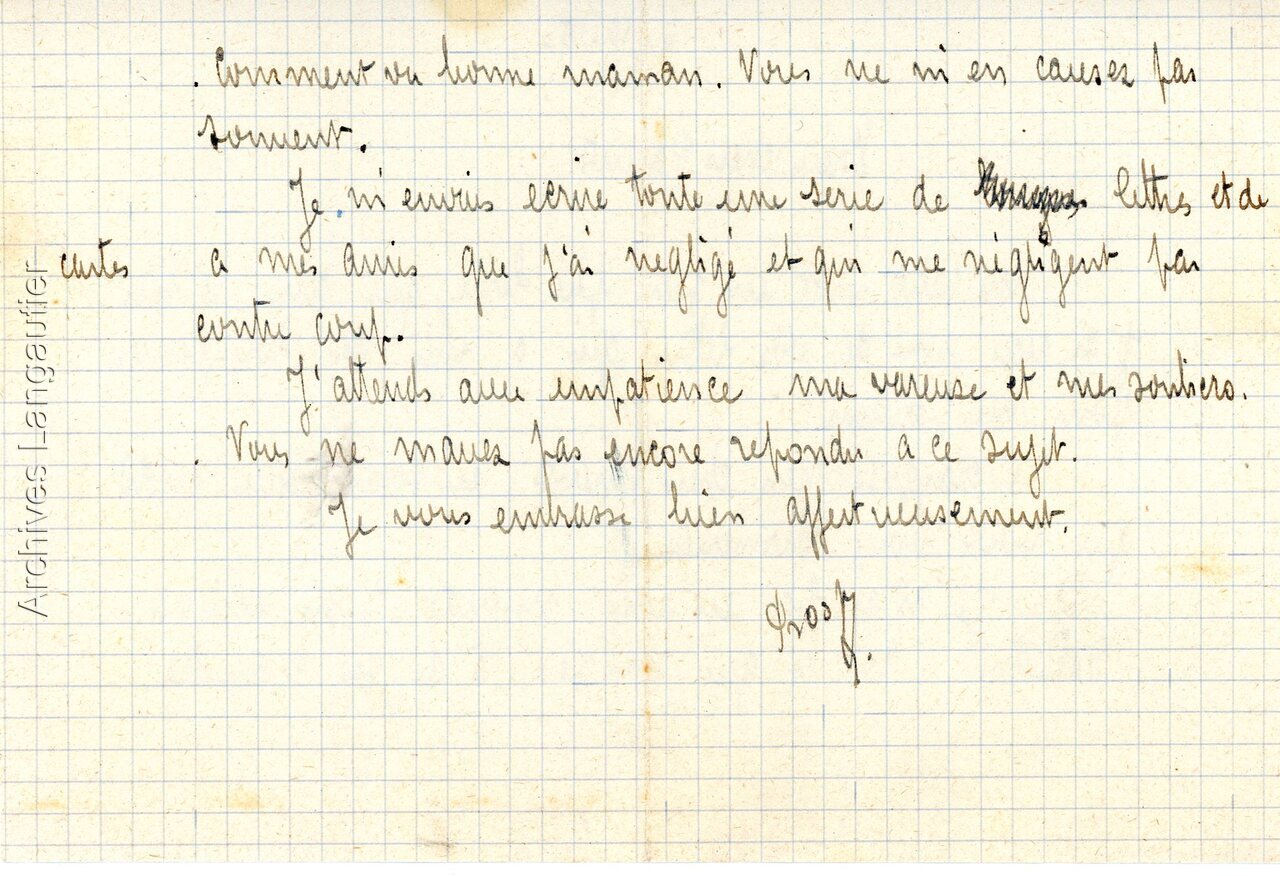 . Comment va bonne maman. Vous ne m'en causez pas
souvent.
Je m'en vais ecrire toute une serie de lettres et de
cartes a mes amies que j'ai negligé et qui me négligent par
contre coup.
J'attends avec impatience ma vareuse et mes souliers.
. Vous ne mavez pas encore repondu a ce sujet.
Je vous embrasse bien affectueusement.
Archives Langautier